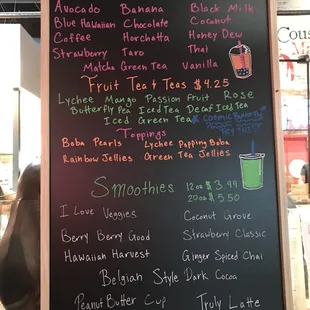 Avocado Banana Black Milk
Blue Hawaiian Chocolate Coconut
Coffee Horchatta Honey Dew
Strawberry Taro Thai
Matcha Green Tea Vanilla
Fruit Tea & Teas $4.25
Lychee Mango Passion Fruit Rose
Butterfly Pea Iced Tea Decaf Iced Tea
Iced Green Tea
Cosmic Butterfly
Try This!
Toppings
Boba Pearls Lychee Popping Boba
Rainbow Jellies Green Tea Jellies
Smoothies 12oz $3.99
20oz $5.50
I Love Veggies Coconut Grove
Berry Berry Good Strawberry Classic
Hawaiian Harvest Ginger Spiced Chai
Belgian Style Dark Cocoa
Peanut Butter Cup Truly Latte
Cous